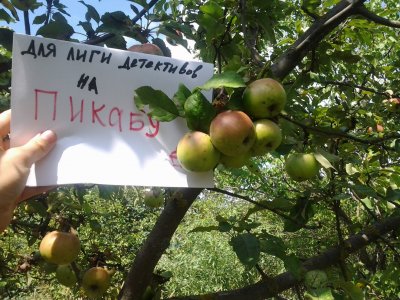 Для лиги детективов
на
Пикабу